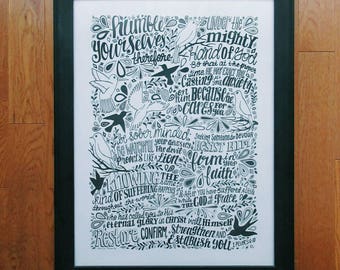 humble
yourselves
therefore
under the
mighty
hand of God
so that at the proper
time He may exalt you
Casting all your anxieties
on Him BECAUSE He
cares for you
sober minded
be watchful your adversary
the devil
prowls LIKE a
Lion
seeking someone to devour
RESIST HIM
firm in
your
faith
KNOWING THE
kind OF SUFFERING
throughout the world
THE GOD of
grace
who has called you to His
eternal GLORY in CHRIST will Himself
Restore CONFIRM Strengthen AND
Establish you